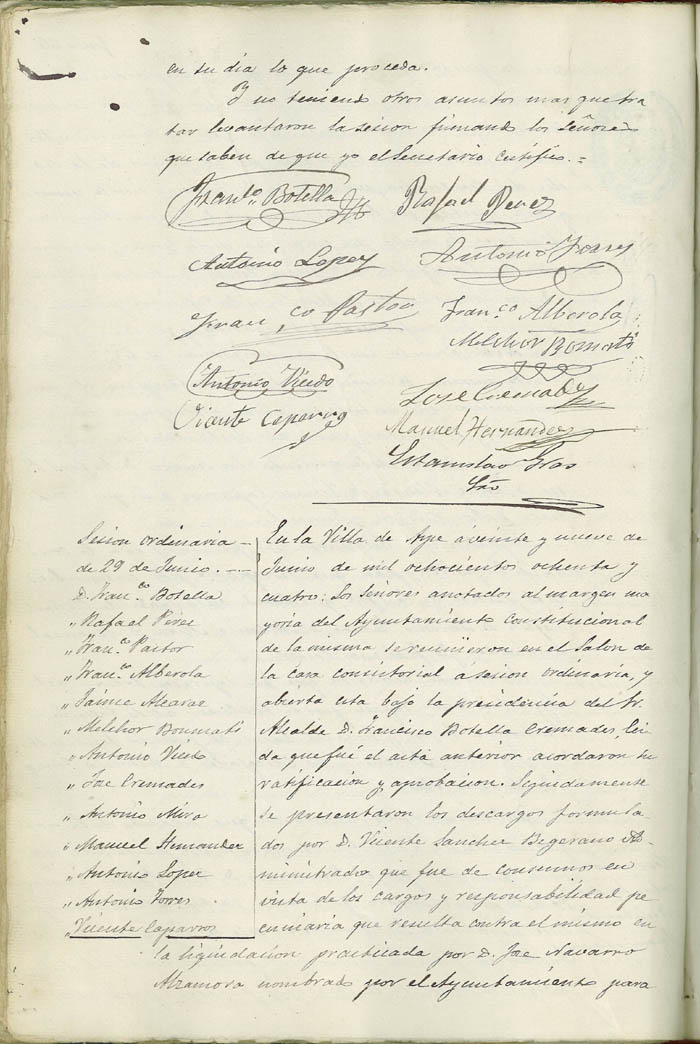 en su dia lo que proceda.
Y no teniendo otros asuntos mas que tra
tar levantaron la sesion firmando los Señores
que saben de que yo el Secretario certifico.=
Franco. Botella
Rafael Perez
Antonio Lopez
Antonio Torres
Franco Pastor
Franco. Alberola
Melchor Bomati
Antonio Vicedo
Jose Cremades
Vicente Caparros
Manuel Hernandez
Estanislao Gras
Srio
Sesion ordinaria
de 29 de Junio.
D. Franco. Botella
" Rafael Pérez
" Franco. Pastor
" Franco. Alberola
" Jaime Alcaraz
" Melchor Boumati
" Antonio Vicedo
" Jose Cremades
" Antonio Mira
" Manuel Hernandez
" Antonio Lopez
" Antonio Torres
" Vicente Caparros
En la Villa de Aspe á veinte y nueve de
Junio de mil ochocientos ochenta y
cuatro: Los Señores anotados al margen ma
yoria del Ayuntamiento Constitucional
de la misma se reunieron en el Salon de
la casa consistorial á sesion ordinaria, y
abierta esta bajo la presidencia del Sr.
Alcalde D. Francisco Botella Cremades, lei
da que fué el acta anterior acordaron su
ratificacion y aprobacion. Seguidamente
se presentaron los descargos formula
dos por D. Vicente Sanchez Bigerano Ad-
ministrador que fue de consumos en
vista de los cargos y responsabilidad pe
cuniaria que resulta contra el mismo en
la liquidacion practicada por D. Jose Navarro
Alzamora nombrado por el Ayuntamiento para